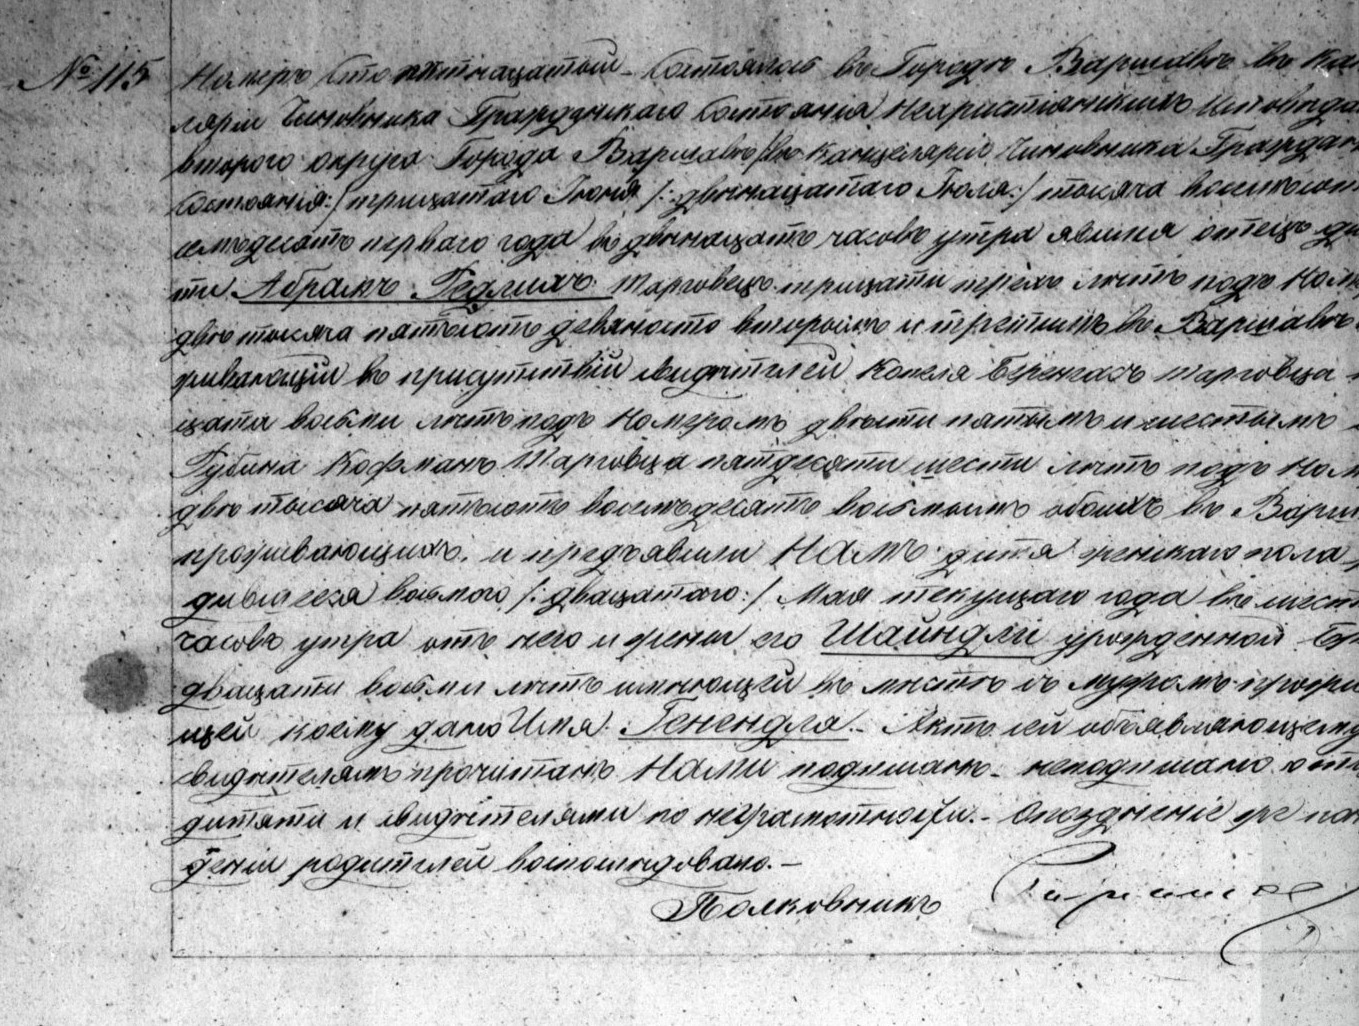 № 115 Номеръ Сто пятнацатый - Состоялось въ Городѣ Варшавѣ въ Кан
ляріи Чиновника Гражданскаго Состоянія Нехристіянскихъ Исповѣда
втораго округа Города Варшавы /въ Канцеляріи Чиновника Граждан
Состоянія:/ трицатаго Іюня /:двѣнацатаго Іюля:/ тысяча восемьсот
семьдесятъ перваго года въ двѣнацать часовъ утра явился отецъ ди
ти Абрамъ Гедлихъ торговецъ трицати трехъ лѣтъ подъ Ном
двѣ тысяча пятьсотъ девяносто вторымъ и третьимъ въ Варшавѣ
живающій въ присутствіи свидѣтелей Копеля торговца
цати восьми лѣтъ подъ Номеромъ двѣсти пятымъ и шестымъ
Рубина Кофманъ торговца пятдесяти шести лѣтъ подъ Ном
двѣ тысяча пятьсотъ восемьдесятъ восьмымъ обоихъ въ Варш
проживающихъ. и предъявили Намъ дитя женскаго пола
дившееся восьмого /:двацатаго:/ Мая текущаго года въ шесть
часовъ утра отъ него и жены его Шайндли урожденной
двацати восьми лѣтъ имѣющей въ мѣстѣ съ мужомъ прожи
щей коему дано Имя Генендля.- Актъ сей объявляющему
свидѣтелямъ прочитанъ Нами подписанъ - неподписано отц
дитяти и свидѣтелями по неграмотности.- Опозденіе же
деніи родителей воспослѣдовало.-
Полковникъ